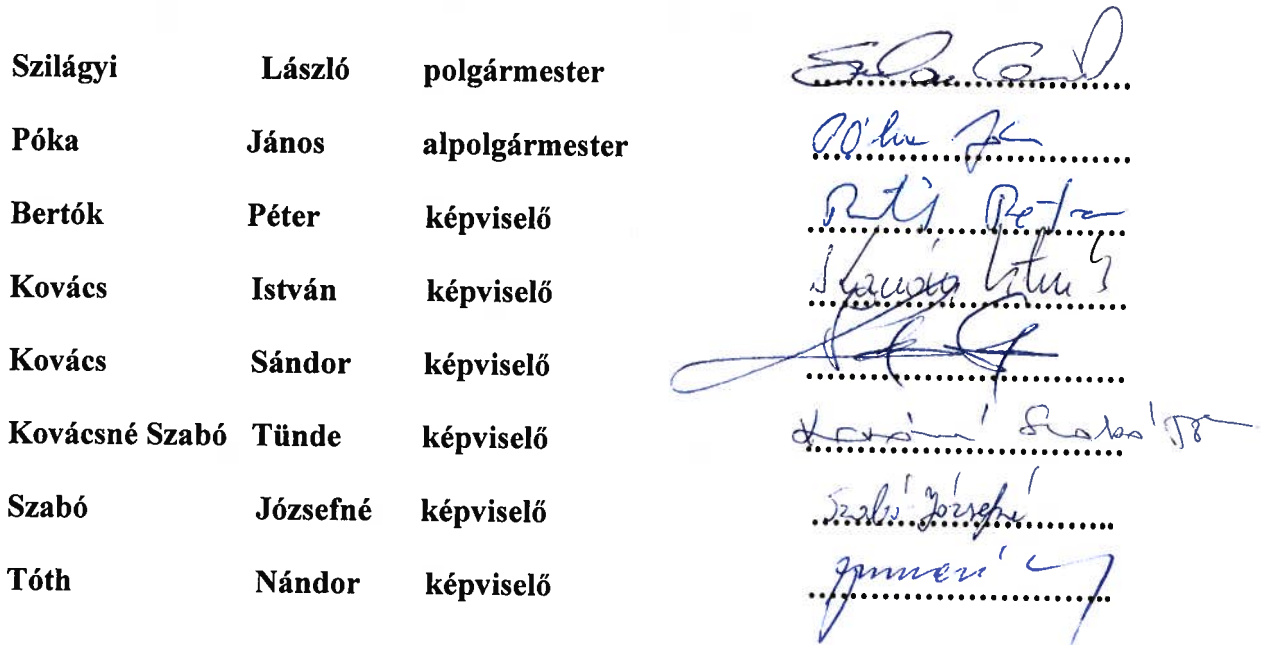 Szilágyi László polgármester
Póka János alpolgármester
Bertók Péter képviselő
Kovács István képviselő Kovács István
Kovács Sándor képviselő
Kovácsné Szabó Tünde képviselő Kovácsné Szabó
Szabó Józsefné képviselő Szabó Józsefné
Tóth Nándor képviselő